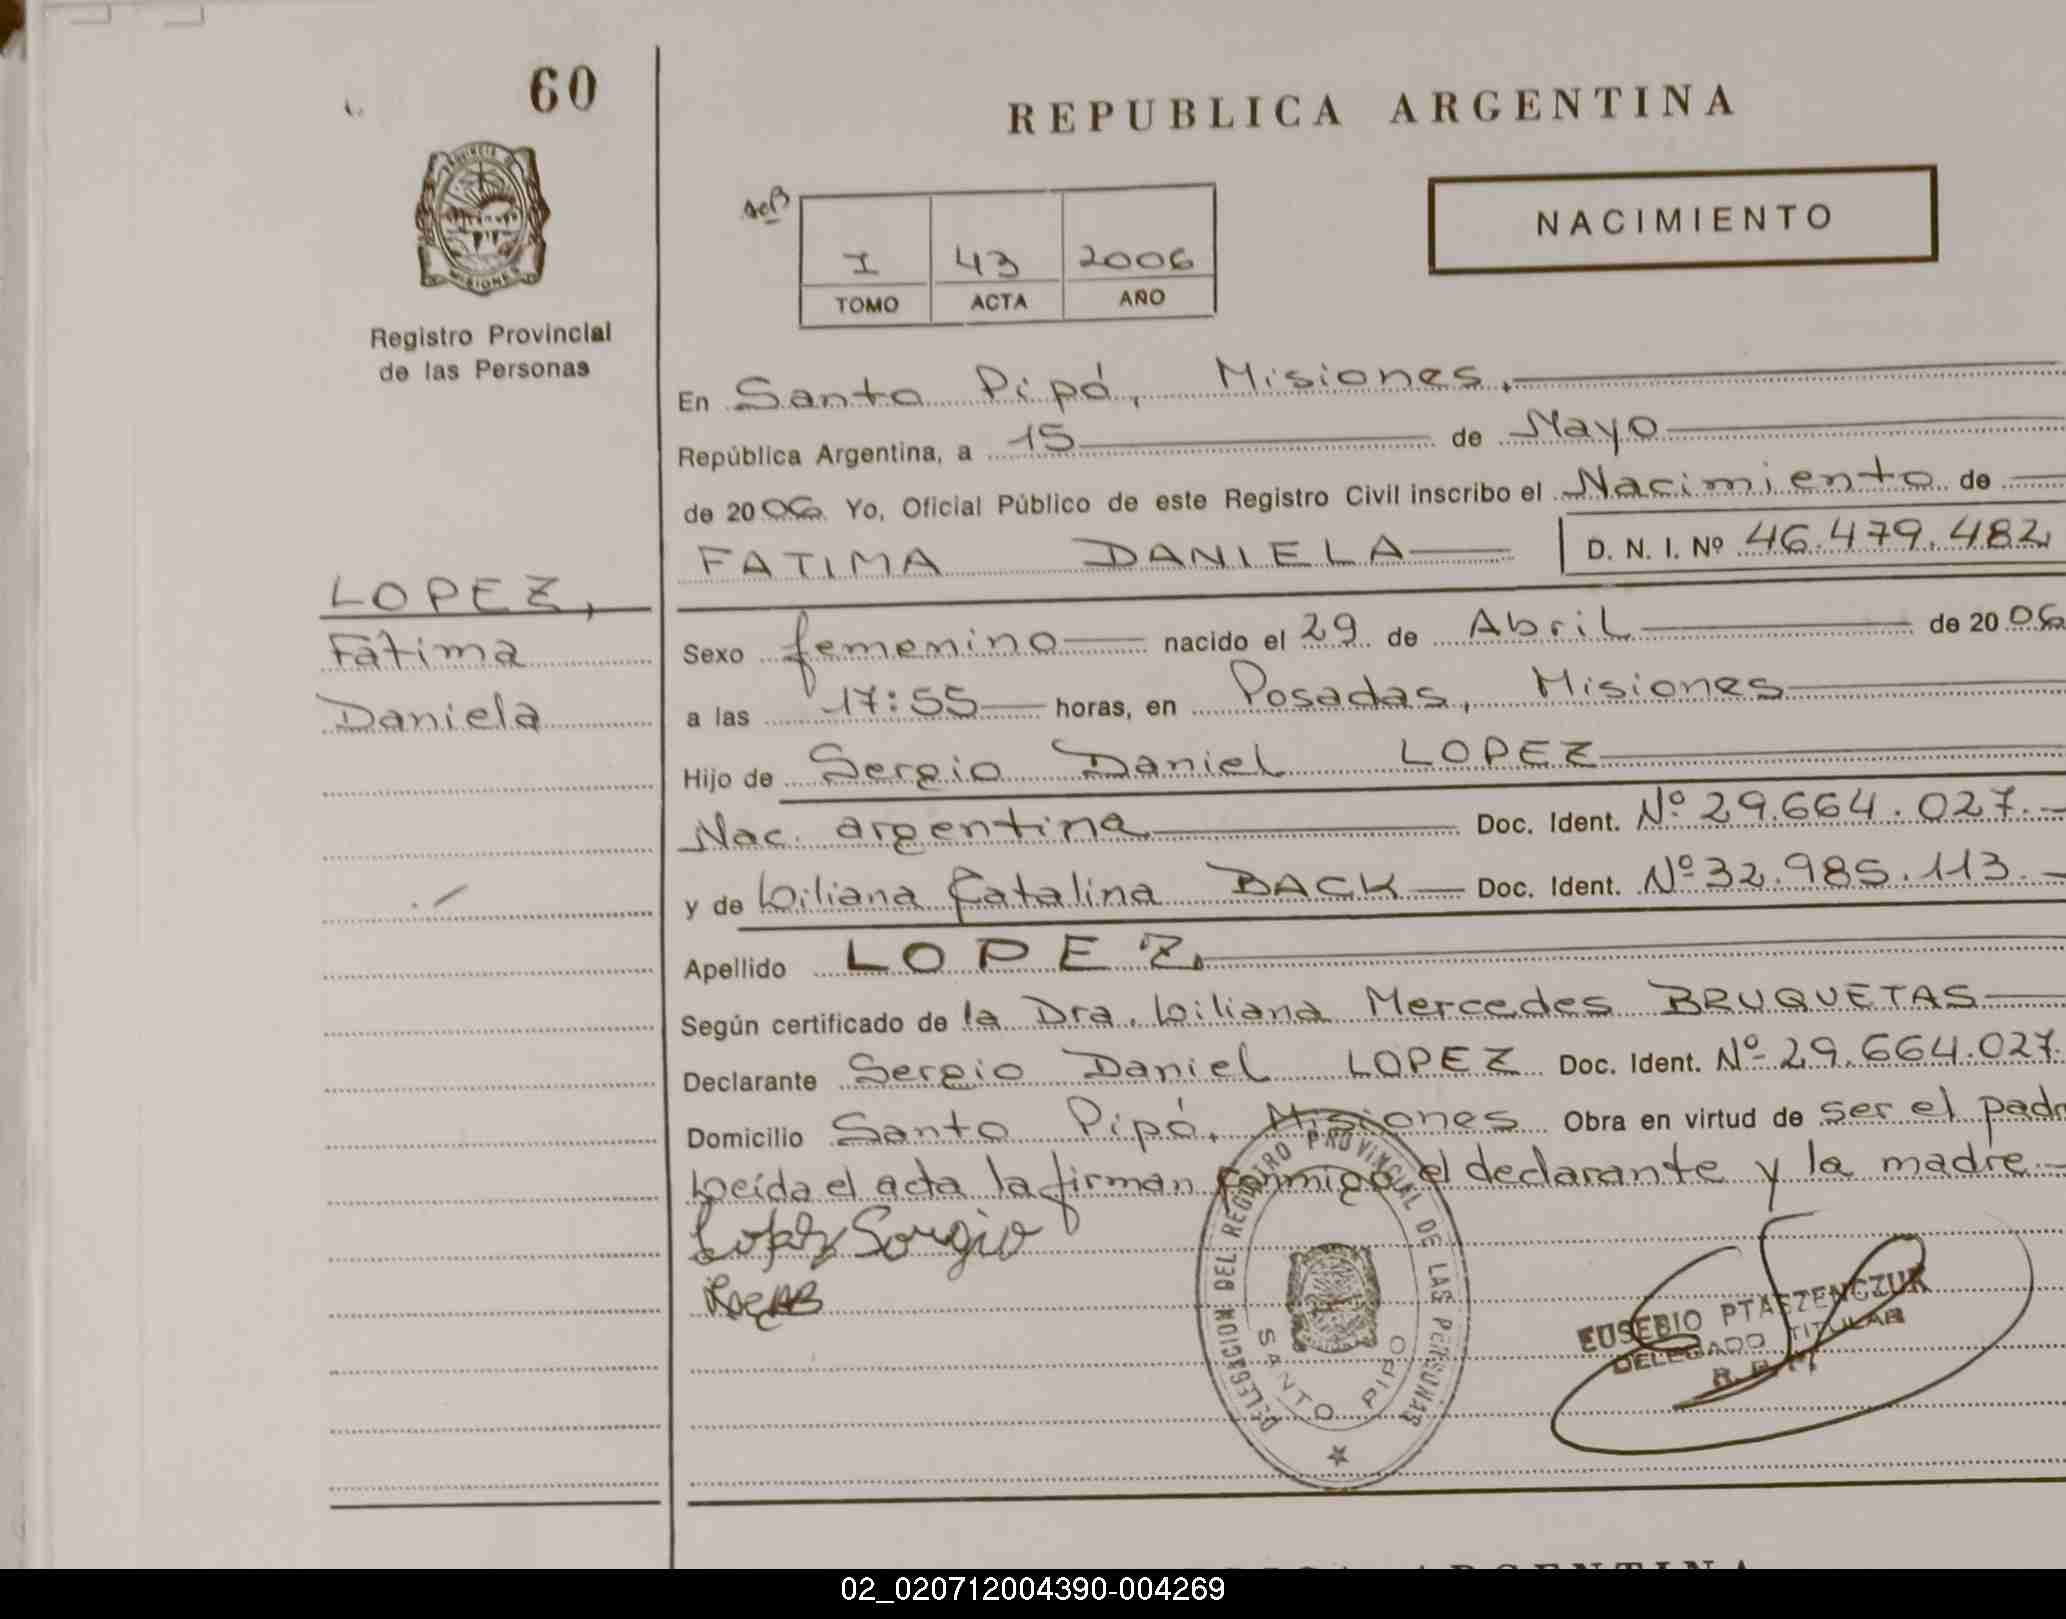 60
REPUBLICA ARGENTINA
NACIMIENTO
I 43 2006
TOMO ACTA AÑO
PROVINCIA DE MISIONES
Registro Provincial
de las Personas
En Santo Pipó, Misiones.
República Argentina, a 15 de Mayo
de 2006 Yo, Oficial Público de este Registro Civil inscribo el Nacimiento de
FATIMA DANIELA D. N. I. Nº 46.479.482
LOPEZ,
Fátima
Daniela
Sexo femenino nacido el 29 de Abril de 2006
a las 17:55 horas, en Posadas, Misiones
Hijo de Sergio Daniel LOPEZ
Nac. argentina Doc. Ident. Nº 29.664.027.-
y de Liliana Catalina BACK Doc. Ident. Nº 32.985.113.-
Apellido LOPEZ
Según certificado de la Dra. Liliana Mercedes BRUQUETAS
Declarante Sergio Daniel LOPEZ Doc. Ident. Nº 29.664.027.
Domicilio Santo Pipó, Misiones Obra en virtud de ser el padr
Leída el acta la firman conmigo el declarante y la madre.-
Lopez Sergio
DELEGACION DEL REGISTRO PROVINCIAL DE LAS PERSONAS
SANTO PIPO
EUSEBIO PTASZENCZUK
DELEGADO TITULAR
02_020712004390-004269